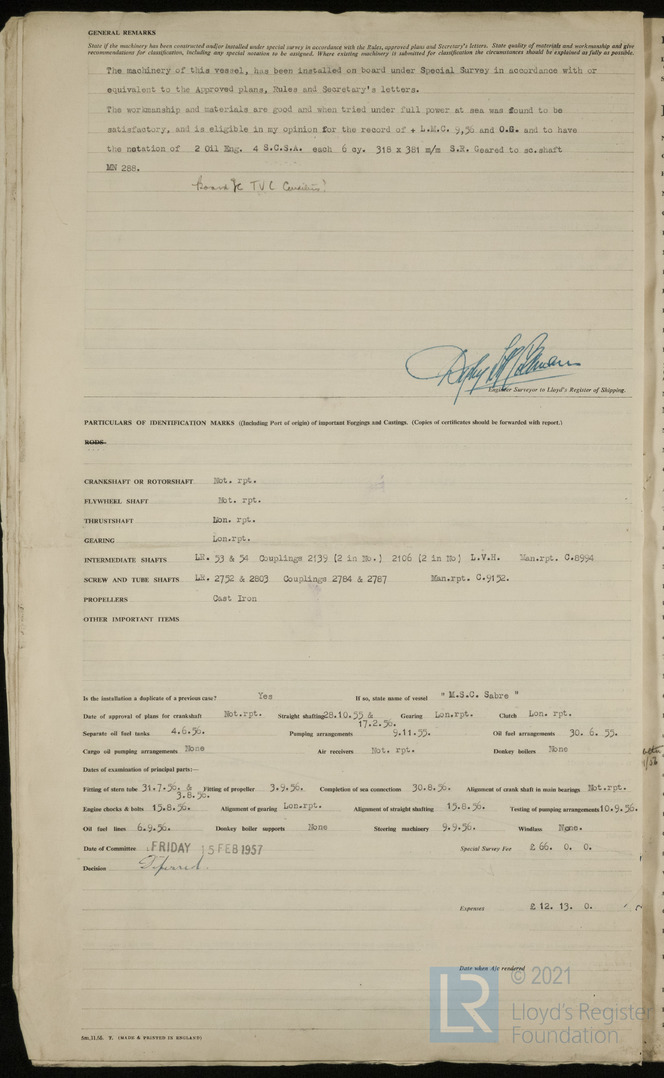 GENERAL REMARKS
State if the machinery has been constructed and/or installed under special survey in accordance with the Rules, approved plans and Secretary's letters. State quality of materials and workmanship and give
recommendations for classification, including any special notation to be assigned. Where existing machinery is submitted for classification the circumstances should be explained as fully as possible.
The machinery of this vessel, has been installed on board under Special Survey in accordance with or
equivalent to the Approved plans, Rules and Secretary's letters.
The workmanship and materials are good and when tried under full power at sea was found to be
satisfactory, and is eligible in my opinion for the record of + L.M.C. 9,56 and O.G. and to have
the notation of 2 Oil Eng. 4 S.C.S.A. each 6 cy. 318 x 381 m/m S.R. Geared to sc.shaft
MN 288.
TVC
Engineer Surveyor to Lloyd's Register of Shipping.
PARTICULARS OF IDENTIFICATION MARKS ((Including Port of origin) of important Forgings and Castings. (Copies of certificates should be forwarded with report.)
RODS
CRANKSHAFT OR ROTORSHAFT Not. rpt.
FLYWHEEL SHAFT Not. rpt.
THRUSTSHAFT Lon. rpt.
GEARING Lon.rpt.
INTERMEDIATE SHAFTS LR. 53 & 54 Couplings 2139 (2 in No.) 2106 (2 in No) L.V.H. Man.rpt. C.8994
SCREW AND TUBE SHAFTS LR. 2752 & 2803 Couplings 2784 & 2787 Man.rpt. C.9152.
PROPELLERS Cast Iron
OTHER IMPORTANT ITEMS
Is the installation a duplicate of a previous case? Yes If so, state name of vessel " M.S.C. Sabre "
Date of approval of plans for crankshaft Not.rpt. Straight shafting 28.10.55 & 17.2.56. Gearing Lon.rpt. Clutch Lon. rpt.
Separate oil fuel tanks 4.6.56. Pumping arrangements 9.11.55. Oil fuel arrangements 30. 6. 55.
Cargo oil pumping arrangements None Air receivers Not. rpt. Donkey boilers None
Dates of examination of principal parts:—
Fitting of stern tube 31.7.56. & 3.8.56. Fitting of propeller 3.9.56. Completion of sea connections 30.8.56. Alignment of crank shaft in main bearings Not.rpt.
Engine chocks & bolts 15.8.56. Alignment of gearing Lon.rpt. Alignment of straight shafting 15.8.56. Testing of pumping arrangements 10.9.56.
Oil fuel lines 6.9.56. Donkey boiler supports None Steering machinery 9.9.56. Windlass None.
Date of Committee FRIDAY 15 FEB 1957 Special Survey Fee £ 66. 0. 0.
Decision Deferred.
Expenses £ 12. 13. 0.
Date when A/c rendered
5M.11.55. T. (MADE & PRINTED IN ENGLAND)
LR
© 2021
Lloyd's Register
Foundation